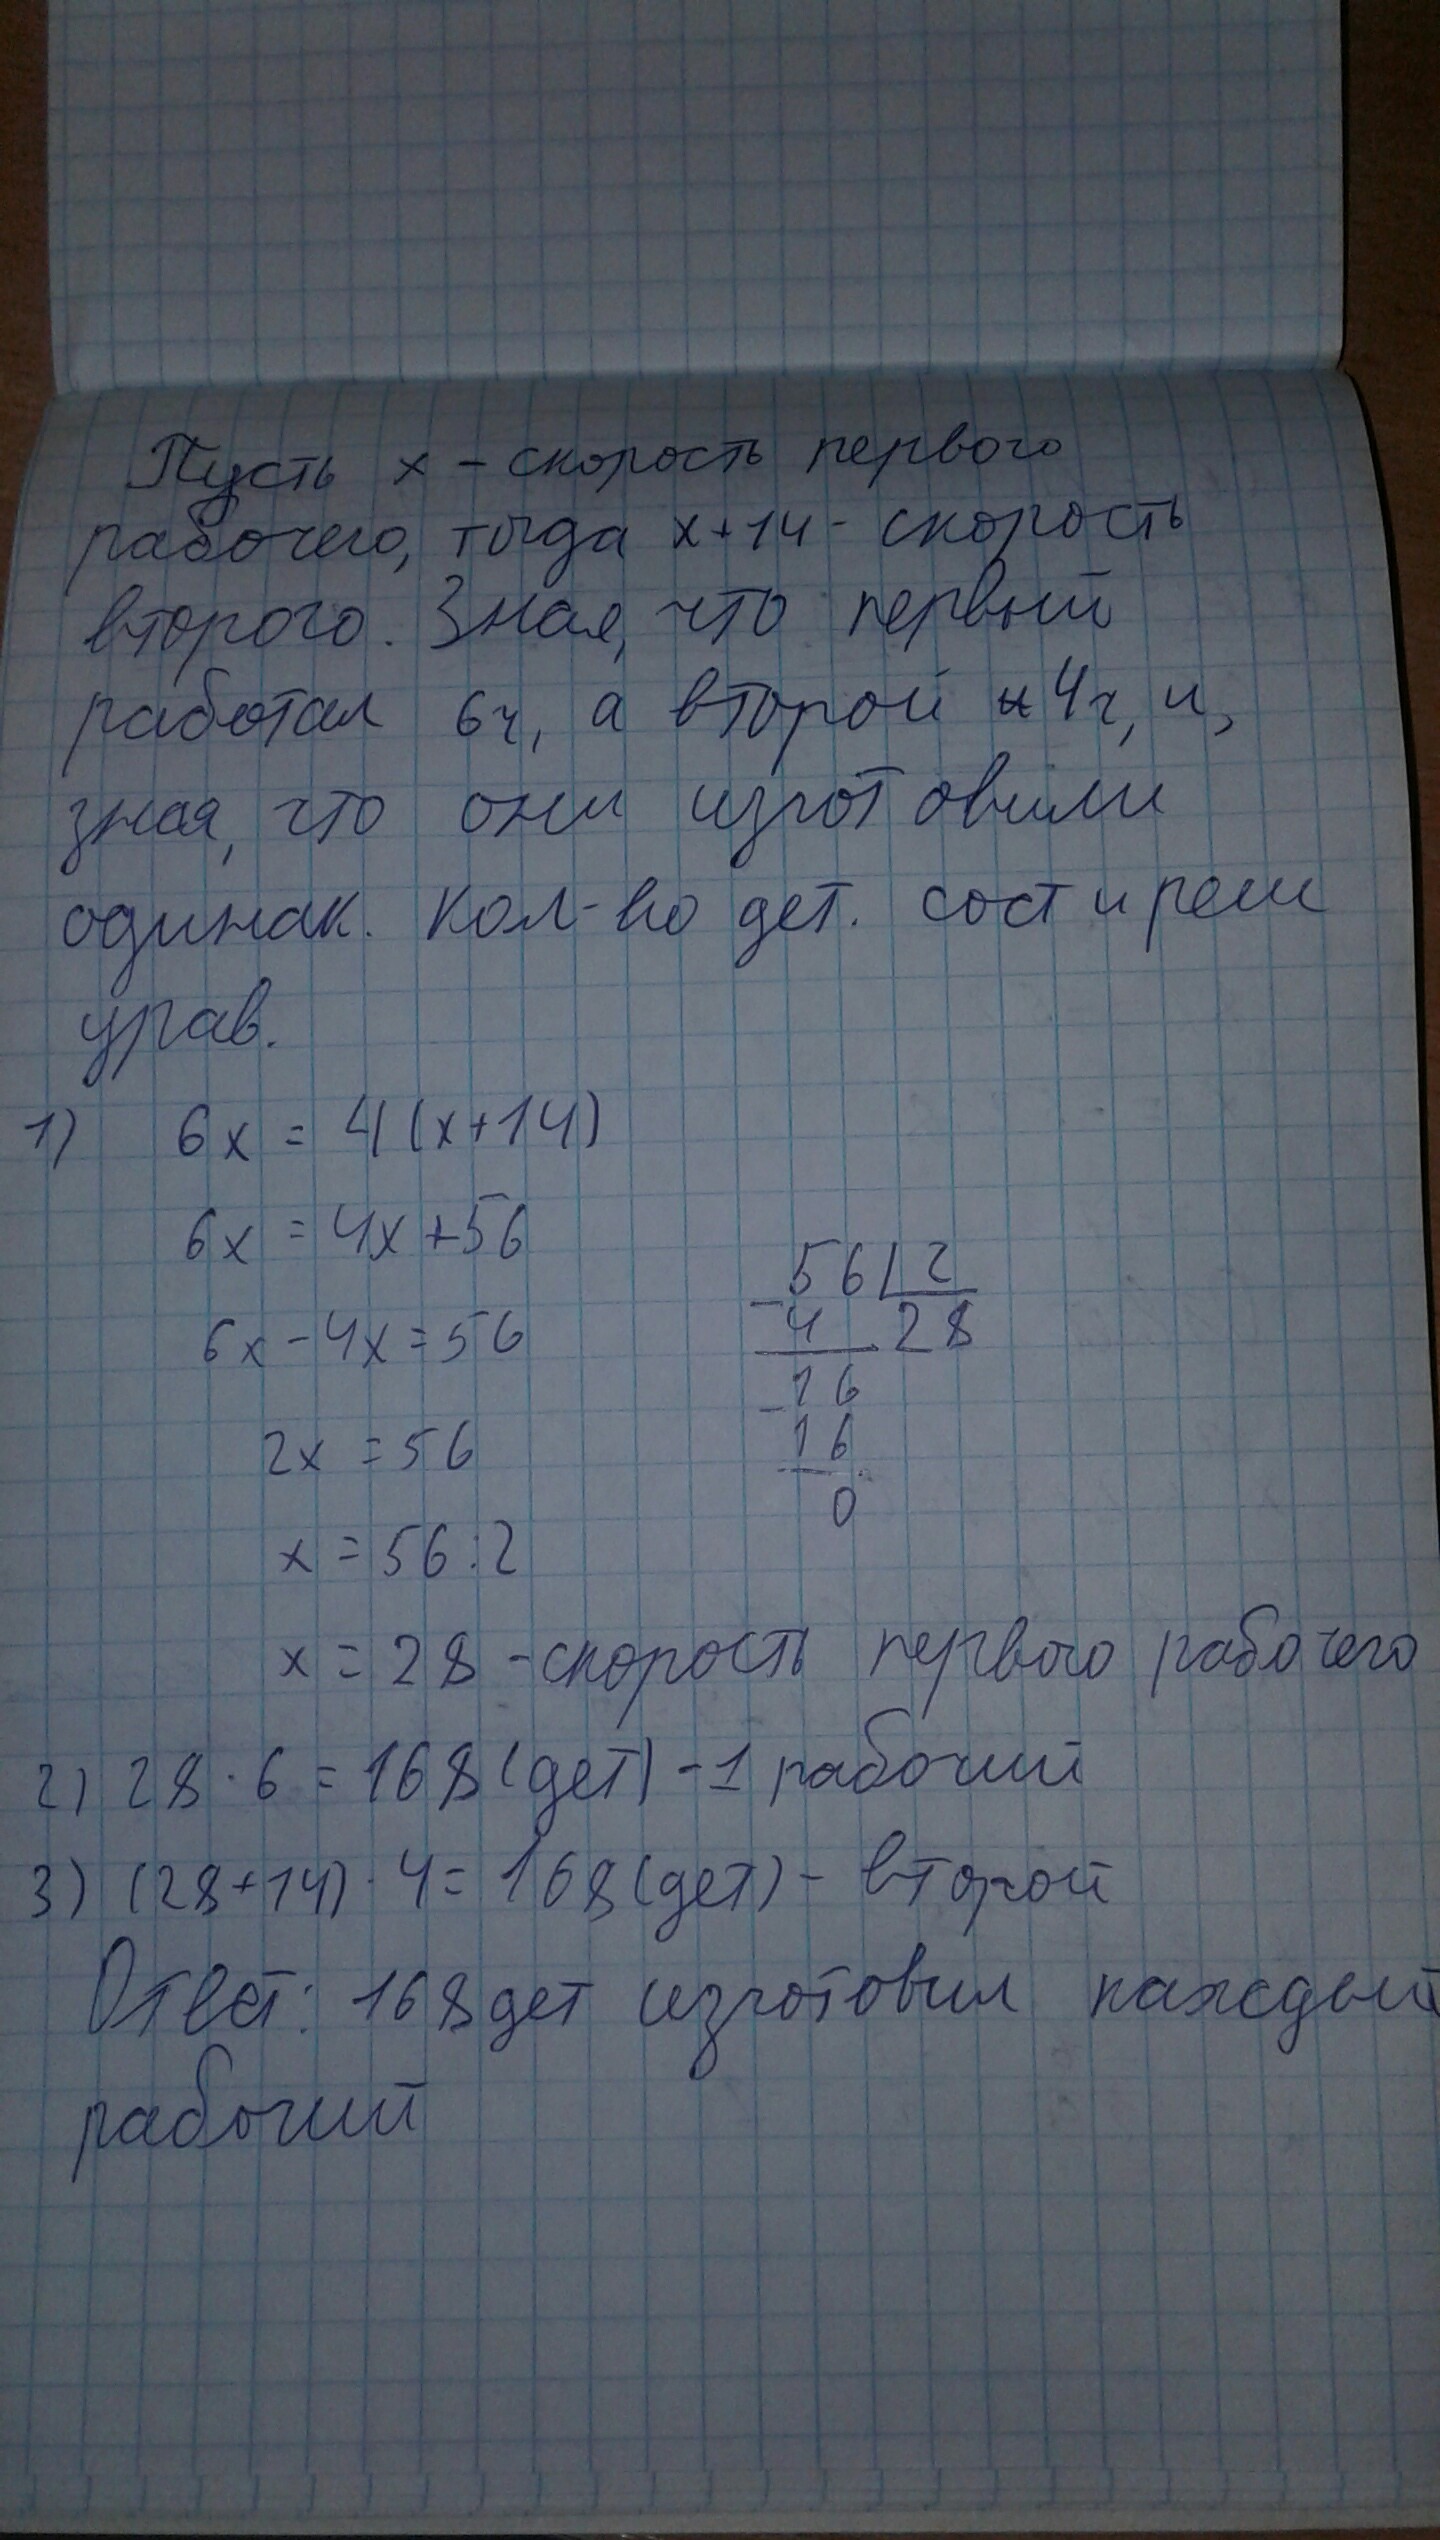 Пусть x - скорость первого
рабочего, тогда x+14 - скорость
второго. Зная, что первый
работал 6ч, а второй 4ч, и,
зная, что они изготовили
одинак. кол-во дет. сост и реш
урав.
1) 6x = 4(x+14)
6x = 4x+56
6x-4x=56
2x = 56
x = 56:2
56 2
- 4 28
- 16
16
0
x = 28 - скорость первого рабочего
2) 28·6 = 168(дет) - 1 рабочий
3) (28+14)·4 = 168(дет) - второй
Ответ: 168 дет изготовил каждый
рабочий